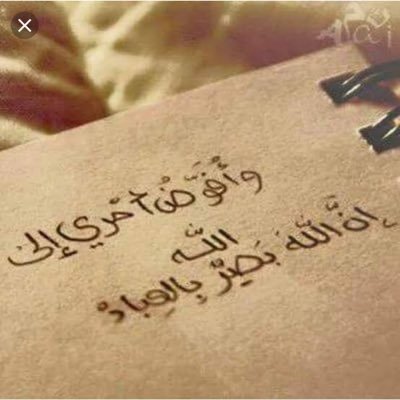 وَأُفَوِّضُ أَمْرِي إِلَى
اللَّه
إِنَّ اللَّهَ بَصِيْرٌ بِالعِبادْ